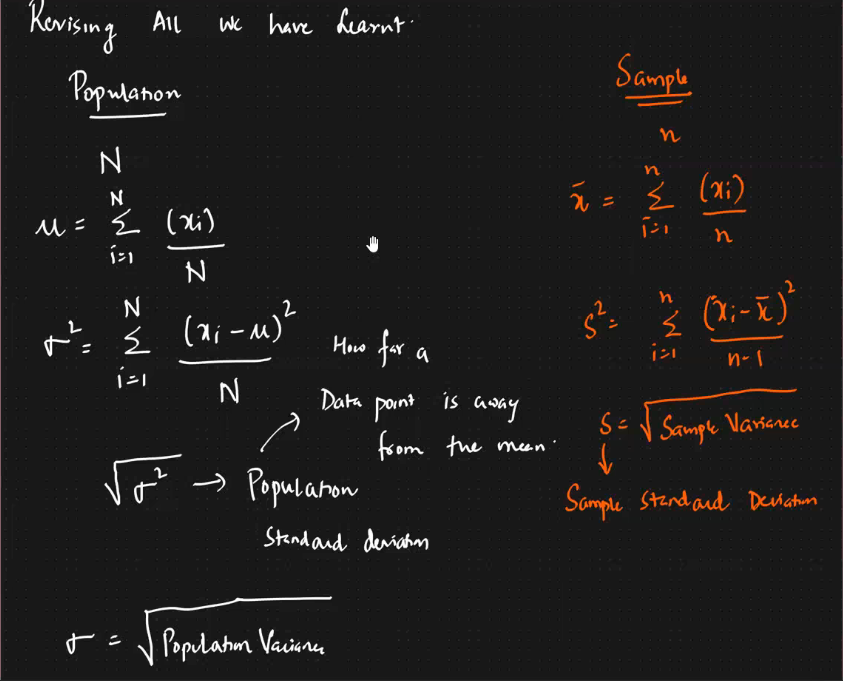 Revising All we have Learnt.
Population
N
μ = N Σ i=1 (xi) / N
σ² = N Σ i=1 (xi - μ)² / N
How far a
Data point is away
from the mean.
√σ² → Population
Standard deviation
σ = √Population Variance
Sample
n
x̄ = n Σ i=1 (xi) / n
S² = n Σ i=1 (xi - x̄)² / n-1
S = √Sample Variance
Sample Standard Deviation